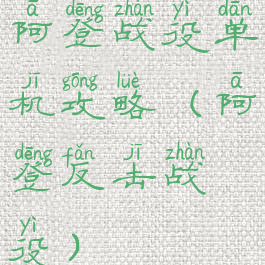 ā dēng zhàn yì dān
阿登战役单
jī gōng lüè ā
机攻略（阿
dēng fǎn jī zhàn
登反击战
yì
役）